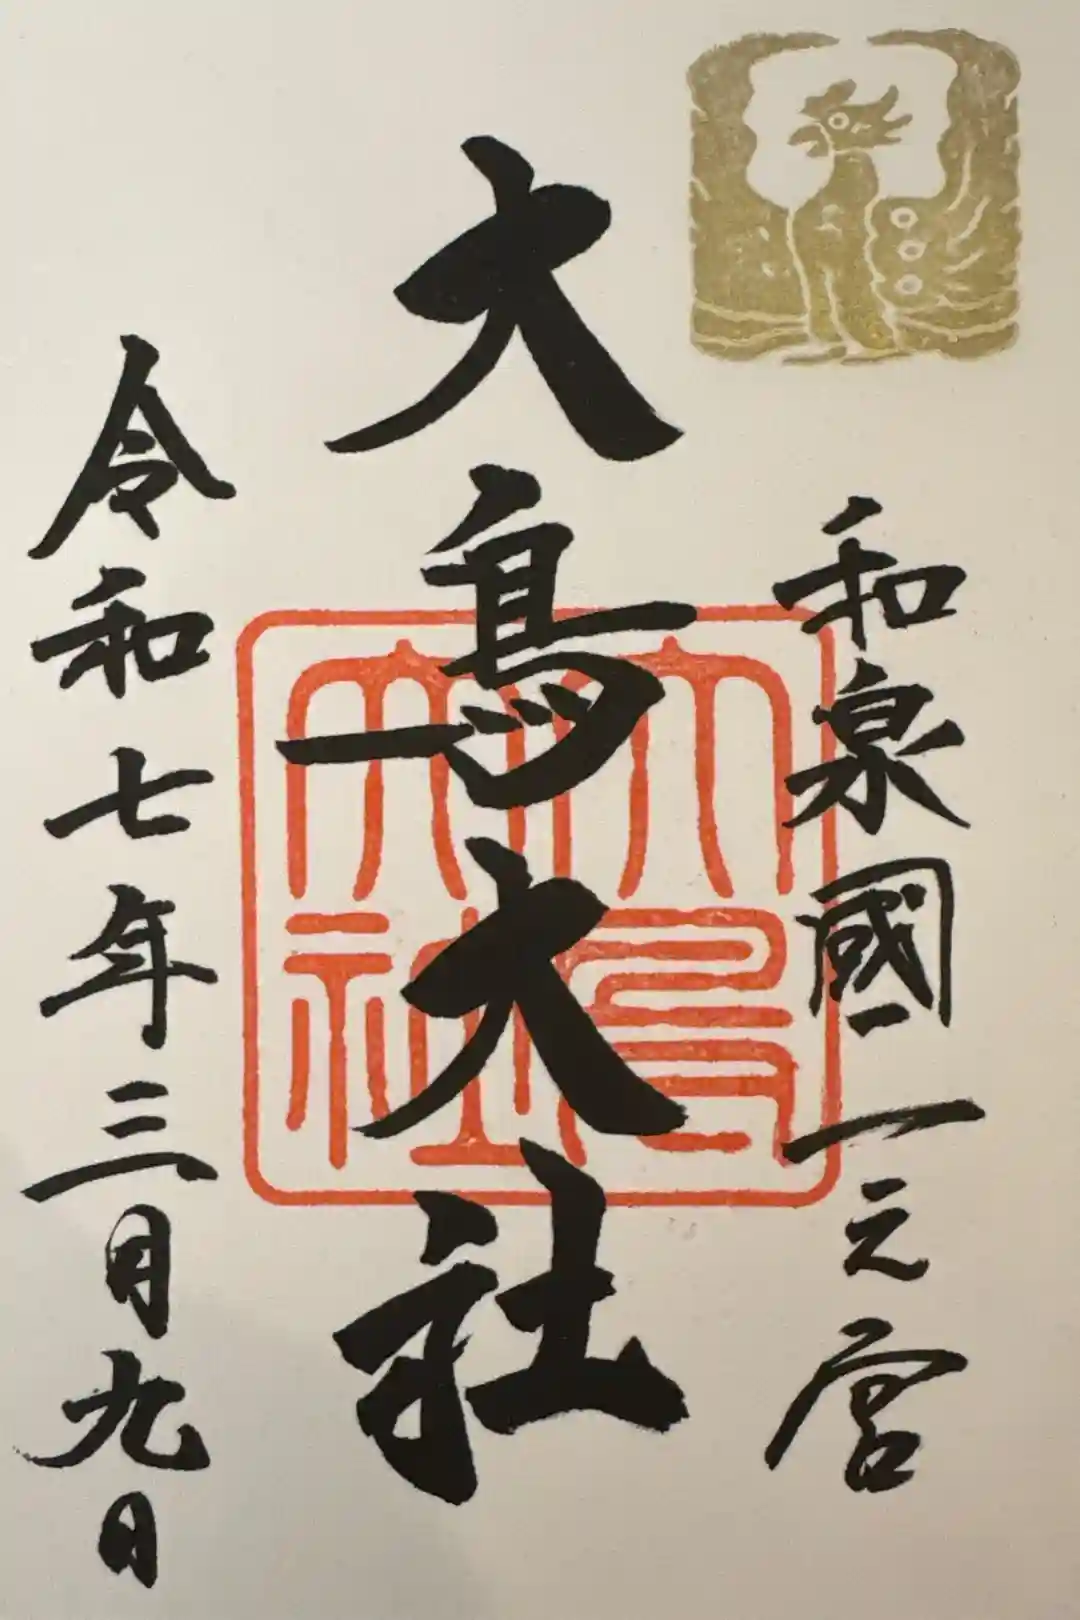 和泉國一之宮
大鳥大社
大鳥大社
令和七年三月九日